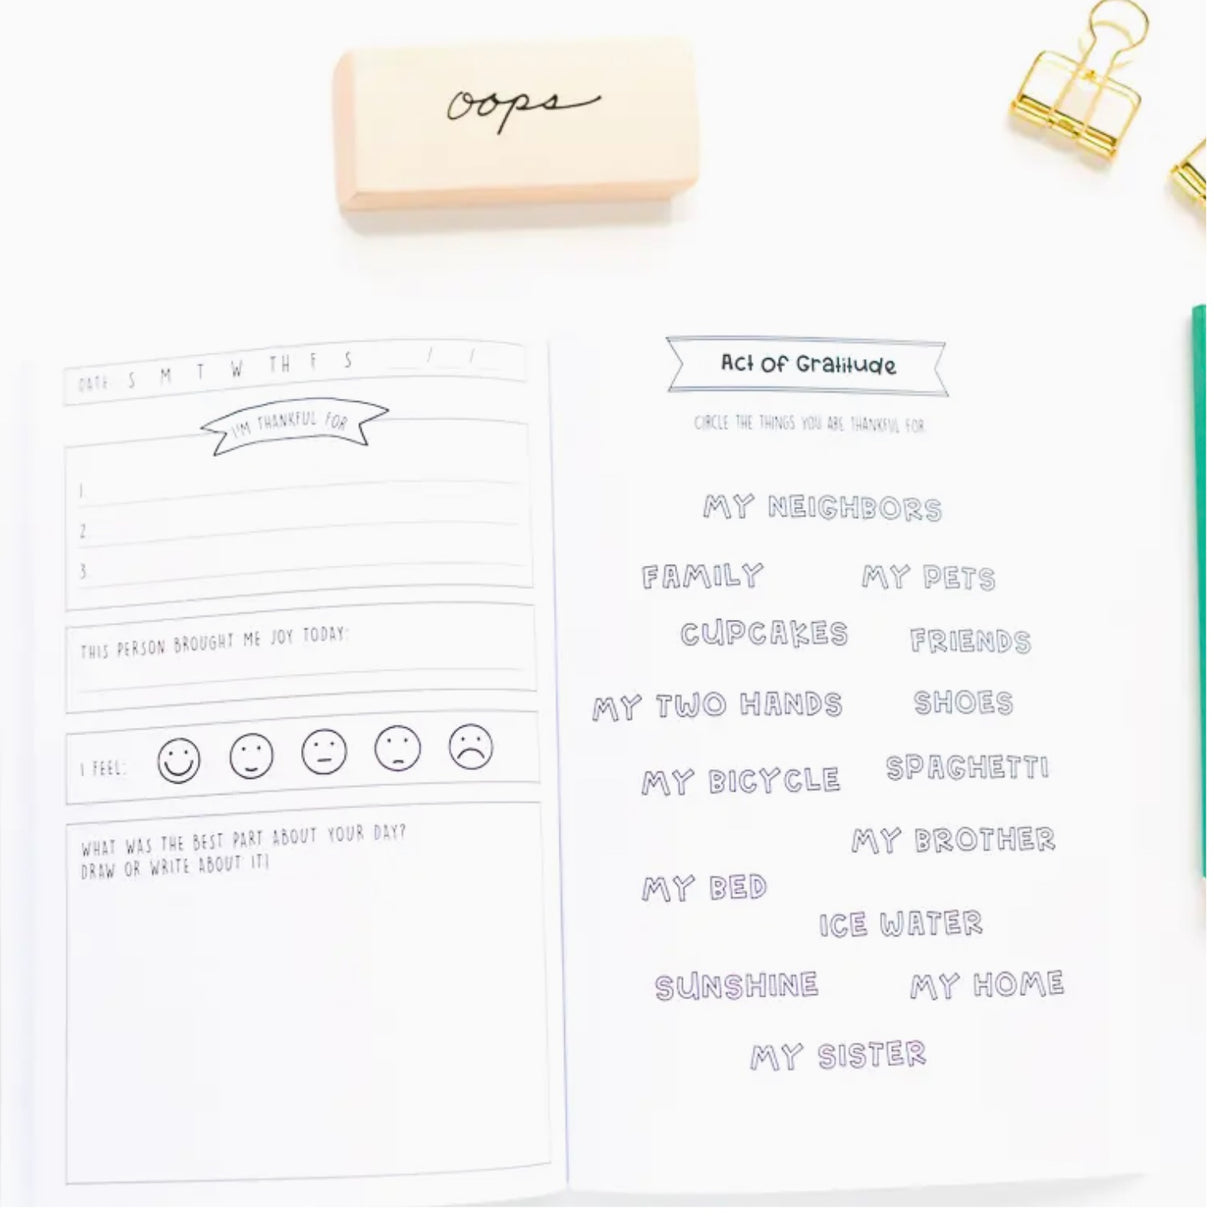 oops
DATE: S M T W TH F S __/__/__
I'M THANKFUL FOR
1.
2.
3.
THIS PERSON BROUGHT ME JOY TODAY:
I FEEL:
WHAT WAS THE BEST PART ABOUT YOUR DAY?
DRAW OR WRITE ABOUT IT!
Act Of Gratitude
CIRCLE THE THINGS YOU ARE THANKFUL FOR
MY NEIGHBORS
FAMILY MY PETS
CUPCAKES FRIENDS
MY TWO HANDS SHOES
MY BICYCLE SPAGHETTI
MY BROTHER
MY BED
ICE WATER
SUNSHINE MY HOME
MY SISTER